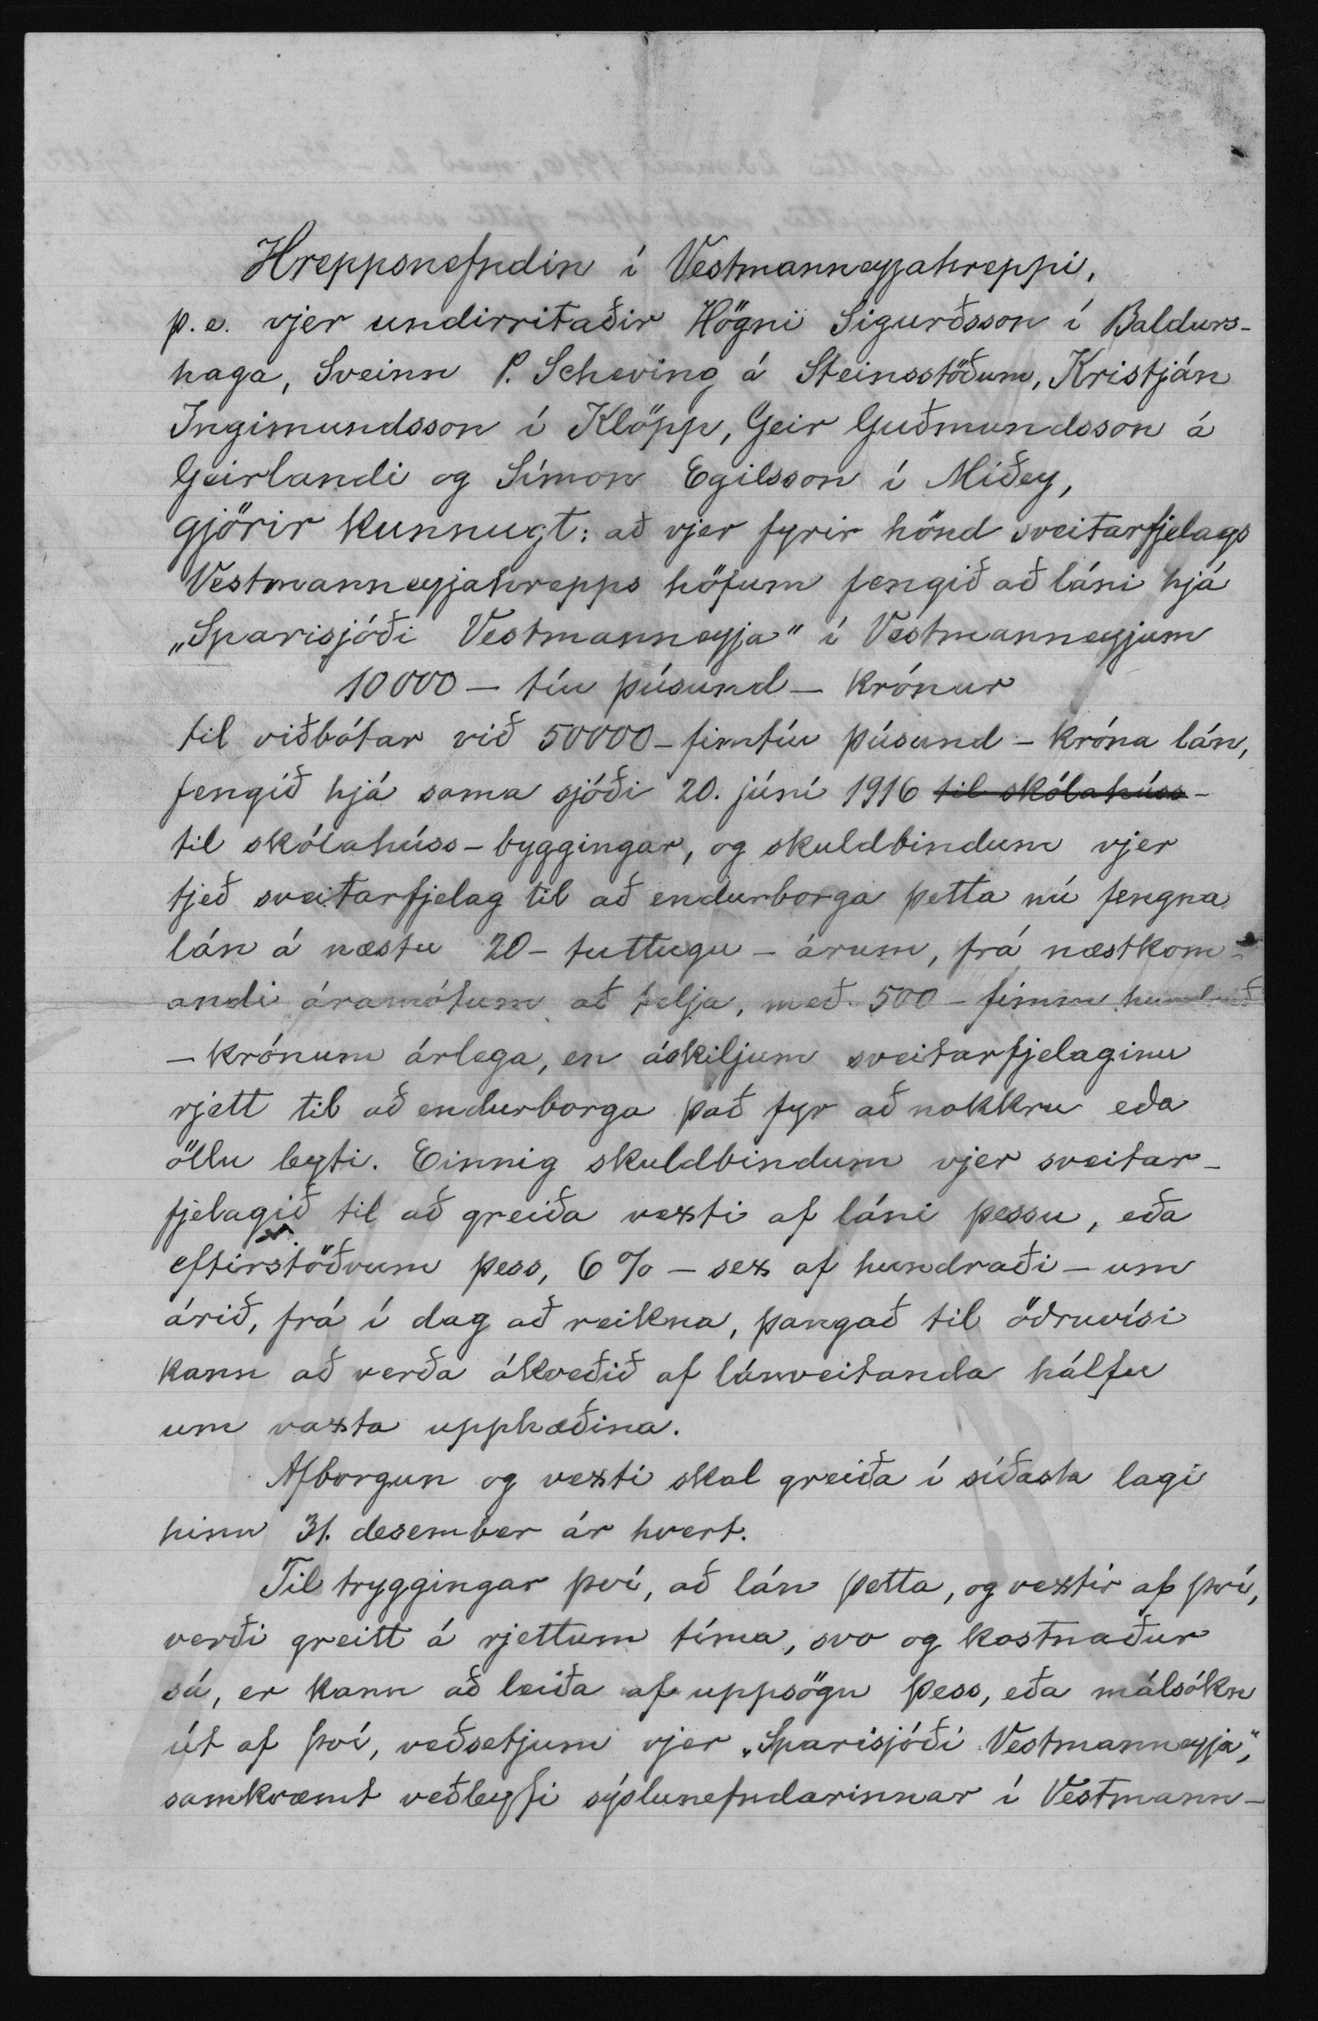 Hreppsnefndin í Vestmanneyjahreppi,
þ.e. vjer undirritaðir Högni Sigurðsson í Baldurs-
haga, Sveinn P. Scheving á Steinsstöðum, Kristján
Ingimundsson í Klöpp, Geir Guðmundsson á
Geirlandi og Símon Egilsson í Miðey,
gjörir kunnugt: að vjer fyrir hönd sveitarfjelags
Vestmanneyjahrepps höfum fengið að láni hjá
„Sparisjóði Vestmanneyja" í Vestmanneyjum
10000 - tíu þúsund - krónur
til viðbótar við 50000 - fimtíu þúsund - króna lán,
fengið hjá sama sjóði 20. júní 1916 til skólahúss-
til skólahúss-byggingar, og skuldbindum vjer
tjeð sveitarfjelag til að endurborga þetta nú fengna
lán á næstu 20 - tuttugu - árum, frá næstkom-
andi áramótum að telja, með 500 - fimm hundruð
- krónum árlega, en áskiljum sveitarfjelaginu
rjett til að endurborga það fyr að nokkru eða
öllu leyti. Einnig skuldbindum vjer sveitar-
fjelagið til að greiða vexti af láni þessu, eða
eftirstöðvum þess, 6% - sex af hundraði - um
árið, frá í dag að reikna, þangað til öðruvísi
kann að verða ákveðið af lánveitanda hálfu
um vaxta upphæðina.
Afborgun og vexti skal greiða í síðasta lagi
hinn 31. desember ár hvert.
Til tryggingar því, að lán þetta, og vextir af því,
verði greitt á rjettum tíma, svo og kostnaður
sá, er kann að leiða af uppsögn þess, eða málsókn
út af því, veðsetjum vjer „Sparisjóði Vestmanneyja",
samkvæmt veðleyfi sýslunefndarinnar í Vestmann-